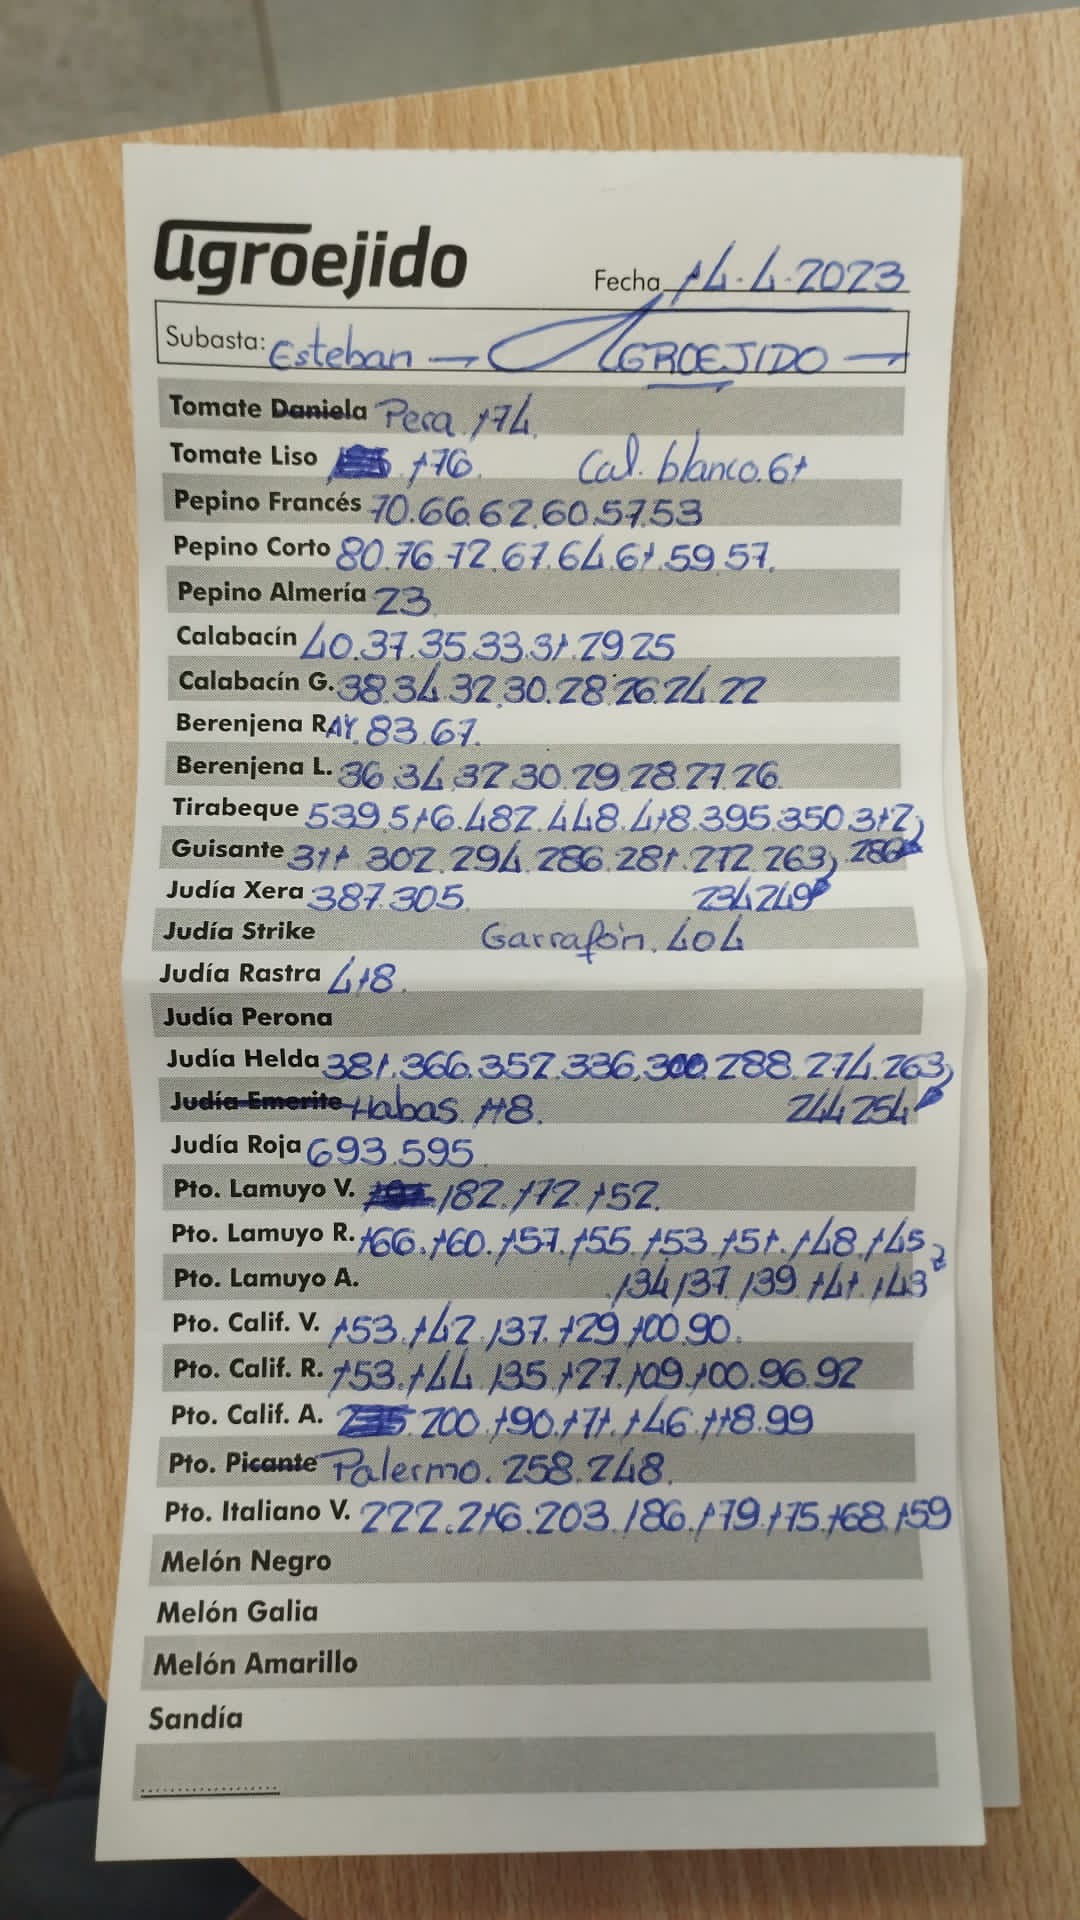 agroejido
Fecha 14.4.2023
Subasta: Esteban → AGROEJIDO
Tomate Daniela Pera. 174.
Tomate Liso 176. Cal. blanco. 61
Pepino Francés 70.66.62.60.57.53
Pepino Corto 80.76.72.67.64.61.59.57.
Pepino Almería 23
Calabacín 40.37.35.33.31.29.25
Calabacín G. 38.34.32.30.28.26.24.22
Berenjena RAY. 83.67.
Berenjena L. 36.34.32.30.29.28.27.26
Tirabeque 539.516.482.448.418.395.350.312
Guisante 311.302.294.286.281.272.263 286
Judía Xera 387.305 234 249
Judía Strike Garrafón. 404
Judía Rastra 418.
Judía Perona
Judía Helda 381.366.352.336.300.288.274.263
Judía Emerite Habas. 118. 244 254
Judía Roja 693.595
Pto. Lamuyo V. 182.172.152.
Pto. Lamuyo R. 166.160.157.155.153.151.148.145
Pto. Lamuyo A. 134 137 139 141 143
Pto. Calif. V. 153.142.137.129.100.90.
Pto. Calif. R. 153.144.135.127.109.100.96.92
Pto. Calif. A. 200.190.171.146.118.99
Pto. Picante Palermo. 258.248.
Pto. Italiano V. 222.216.203.186.179.175.168.159
Melón Negro
Melón Galia
Melón Amarillo
Sandía